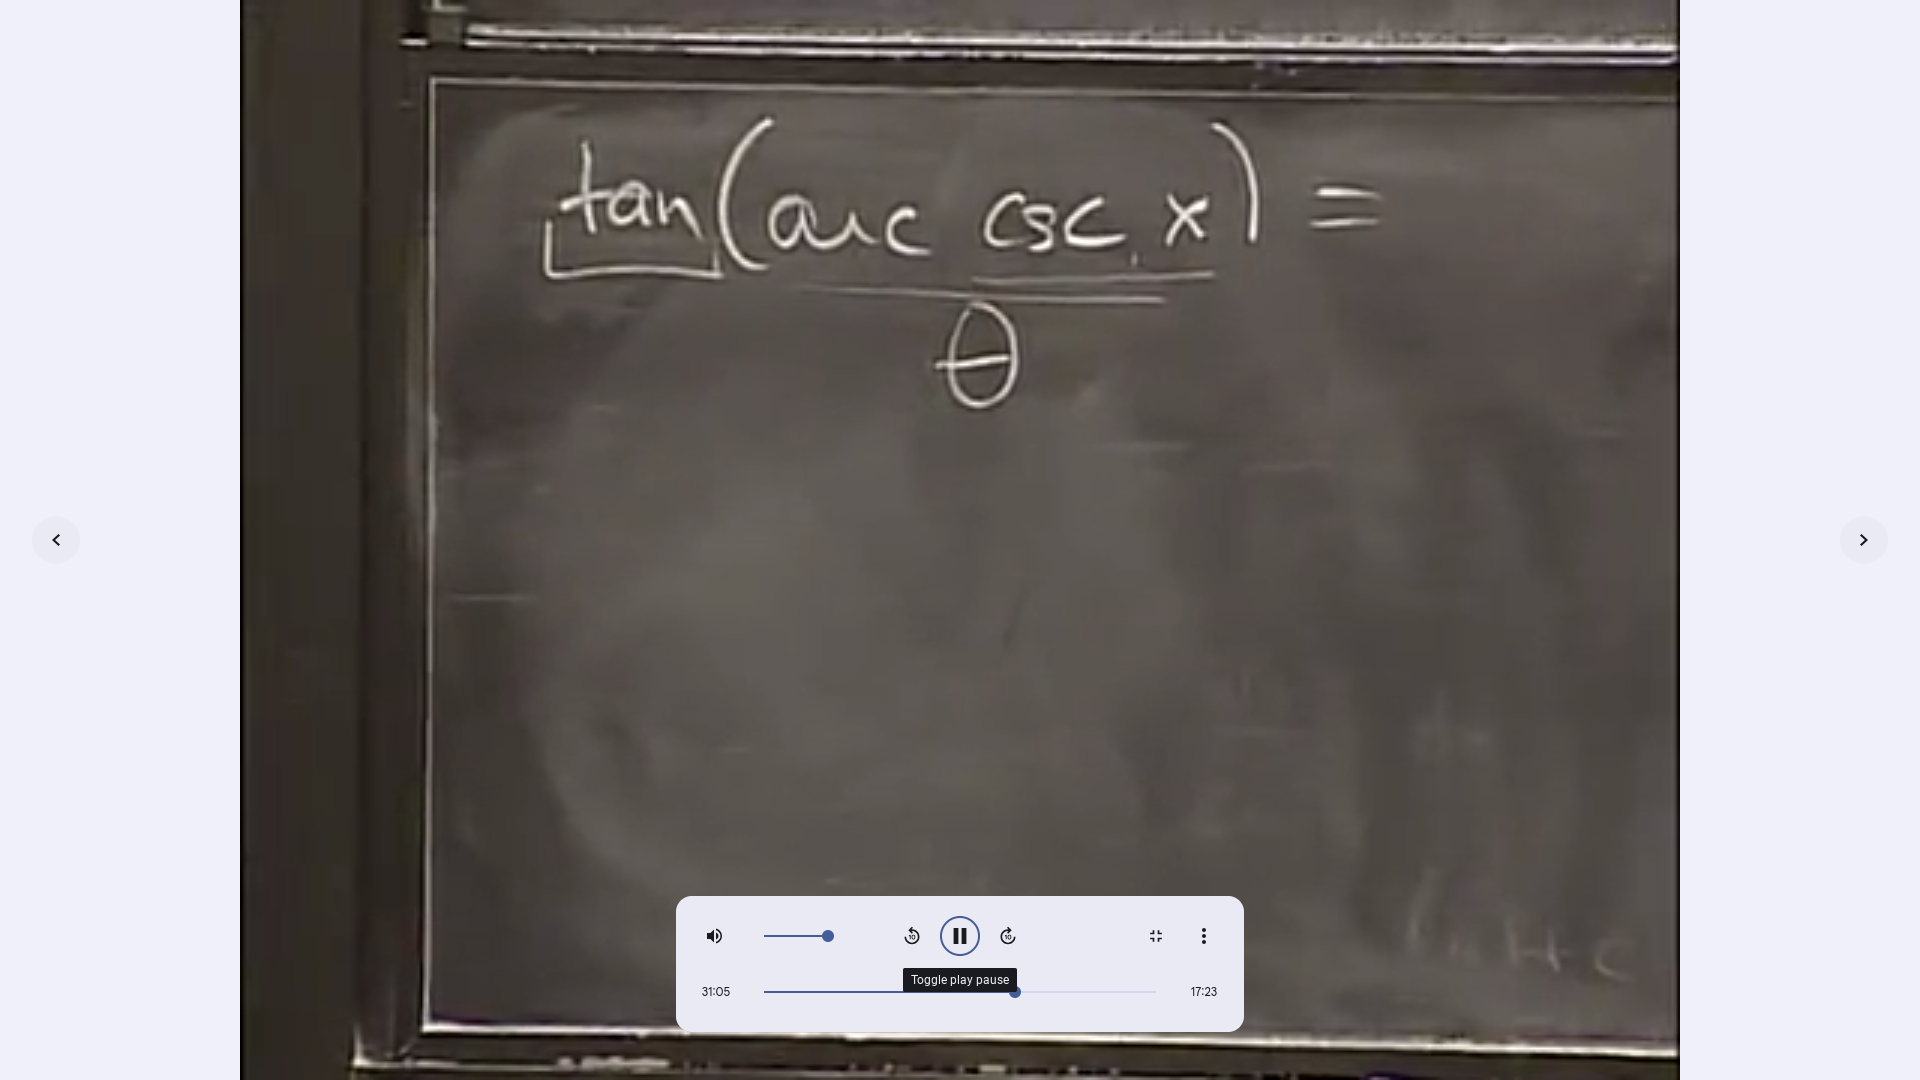 tan(arc csc x) =
θ
10
10
Toggle play pause
31:05
17:23